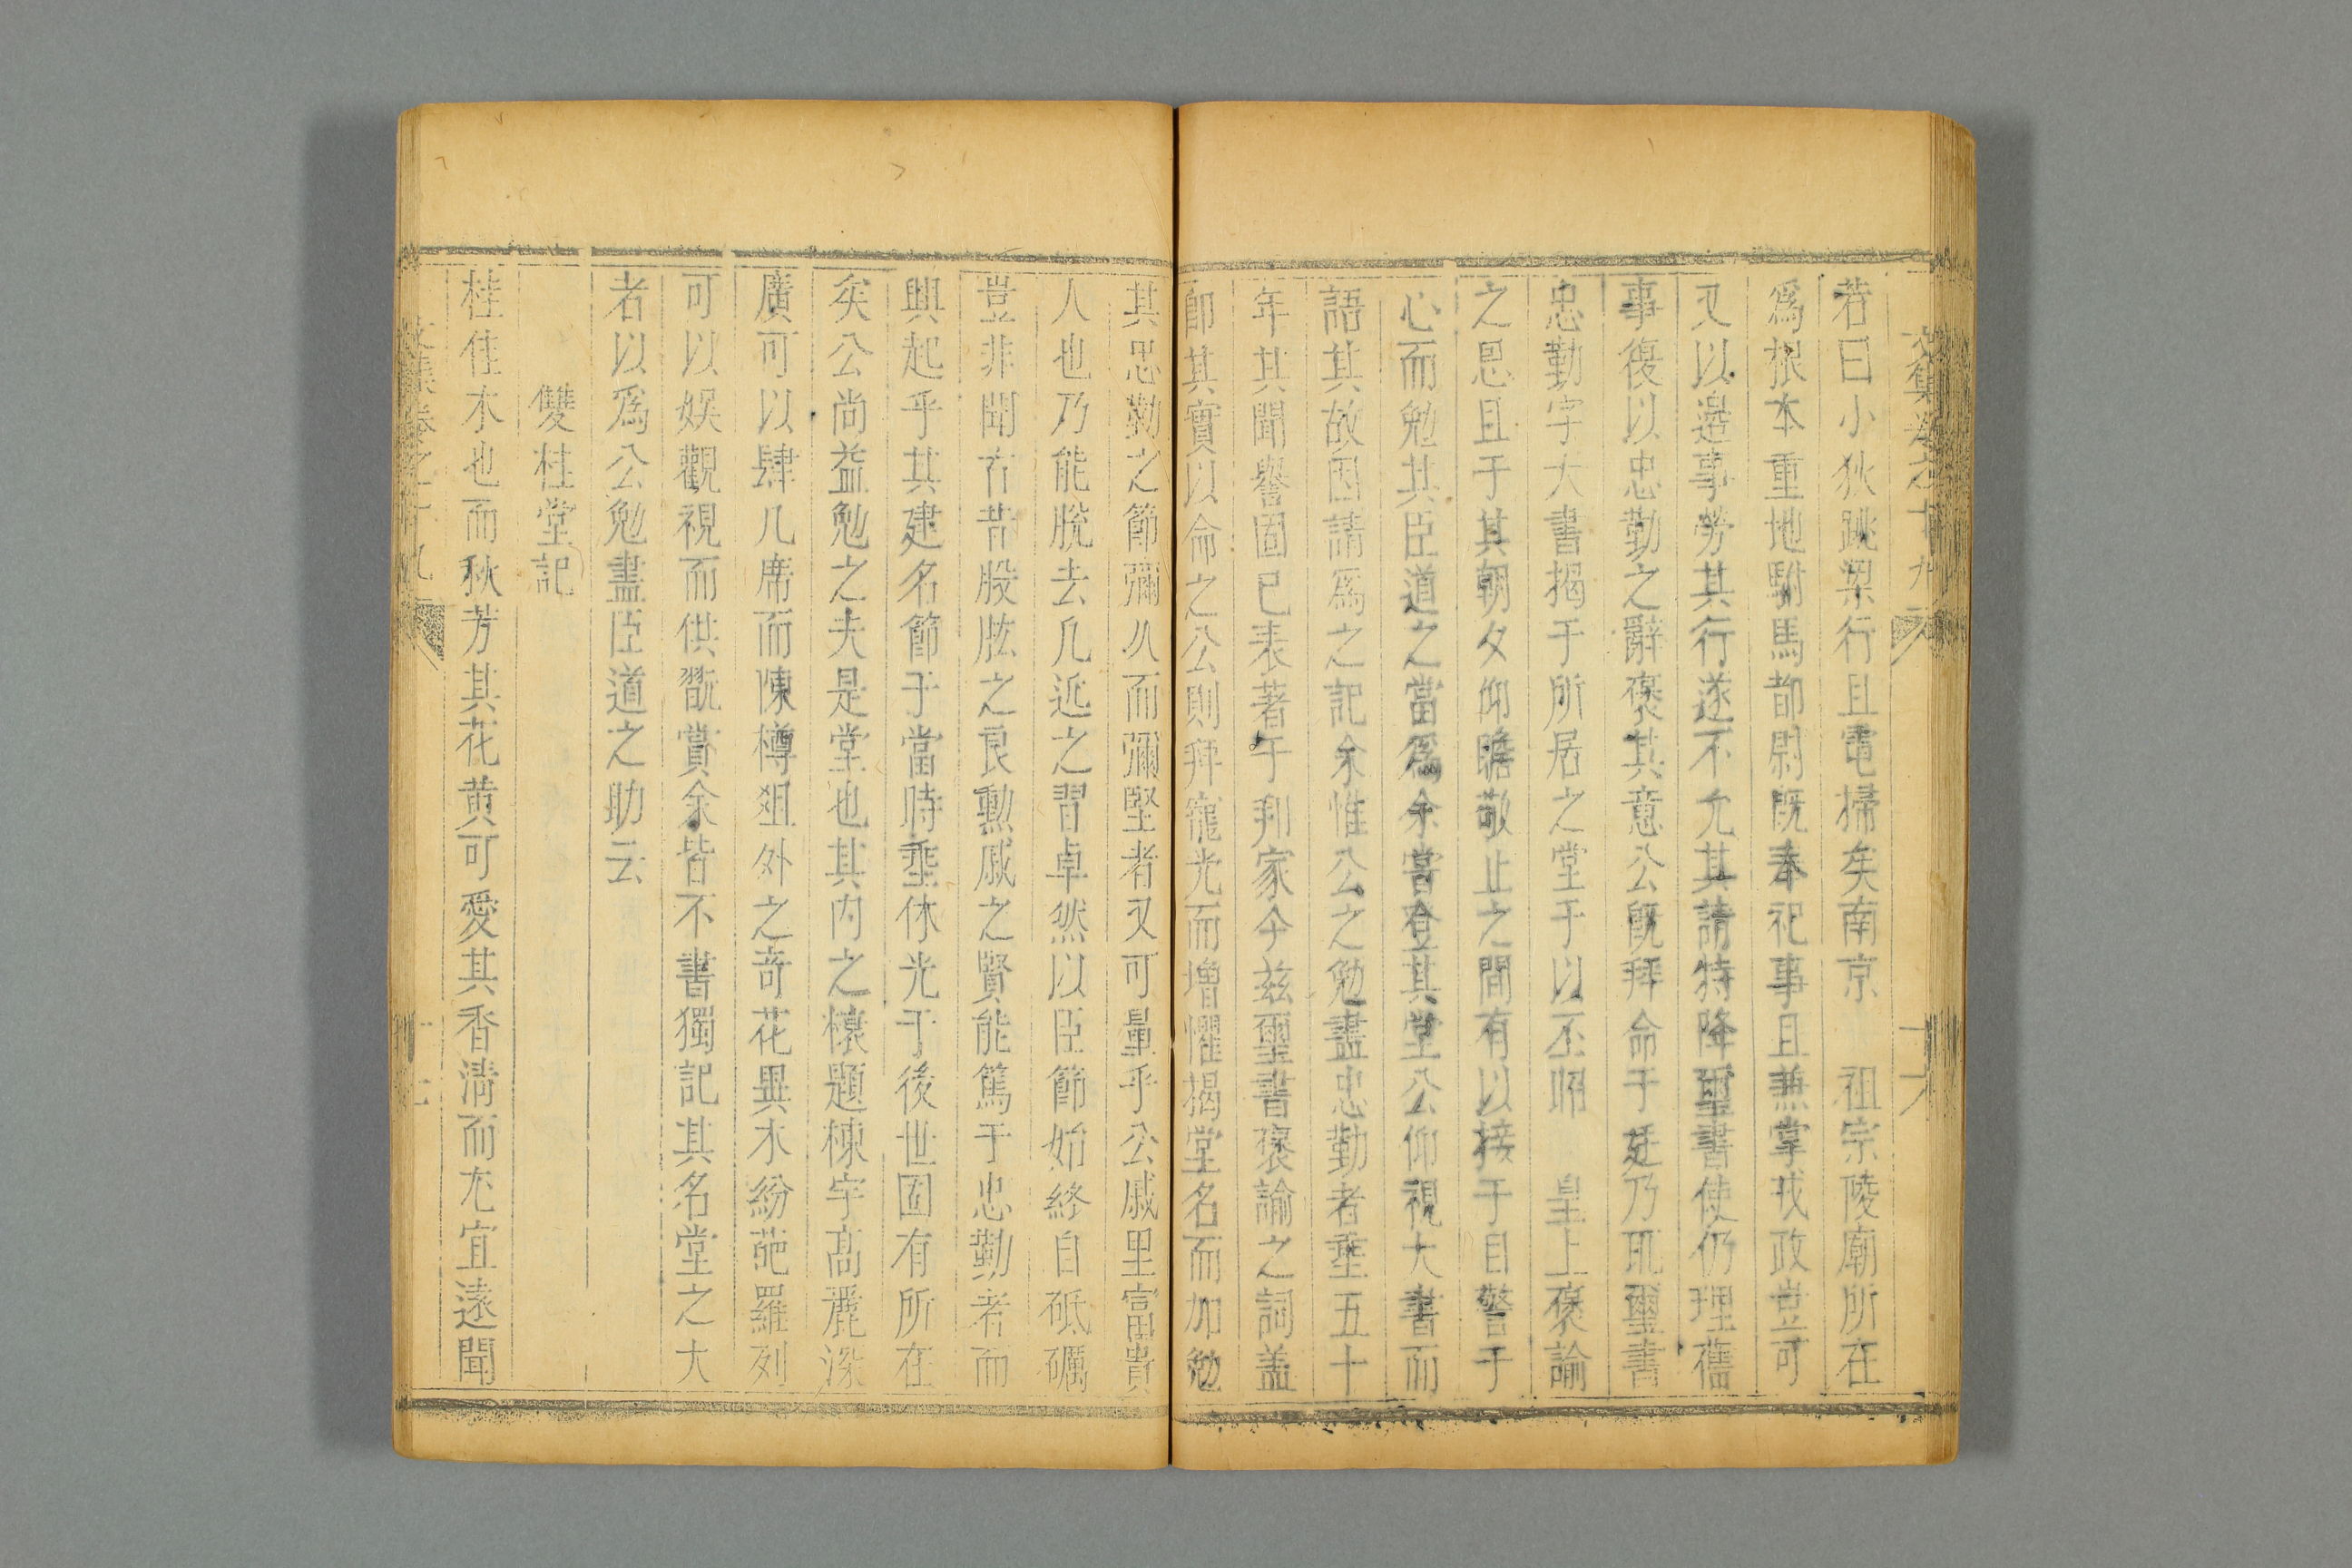 文集卷之十九
十六
若曰小狄跳梁行且電掃矣南京　祖宗陵廟所在
爲根本重地駙馬都尉既奉祀事且兼掌戎政豈可
又以邊事勞其行遂不允其請特降璽書使仍理舊
事復以忠勤之辭褒其意公既拜命于廷乃取璽書
忠勤字大書揭于所居之堂于以丕昭　皇上褒諭
之恩且于其朝夕仰瞻敬止之間有以接于目警于
心而勉其臣道之當爲余嘗登其堂公仰視大書而
語其故因請爲之記余惟公之勉盡忠勤者垂五十
年其聞譽固已表著于邦家今茲璽書褒諭之詞盖
即其實以命之公則拜寵光而增懼揭堂名而加勉
其忠勤之節彌久而彌堅者又可量乎公戚里富貴
人也乃能脫去凡近之習卓然以臣節始終自砥礪
豈非聞有昔股肱之良勳戚之賢能篤于忠勤者而
興起乎其建名節于當時垂休光于後世固有所在
矣公尚益勉之夫是堂也其内之榱題棟宇高麗深
廣可以肆几席而陳樽俎外之奇花異木紛葩羅列
可以娛觀視而供翫賞余皆不書獨記其名堂之大
者以爲公勉盡臣道之助云
雙桂堂記
桂佳木也而秋芳其花黄可愛其香清而尤宜遠聞
文集卷之十九
十七